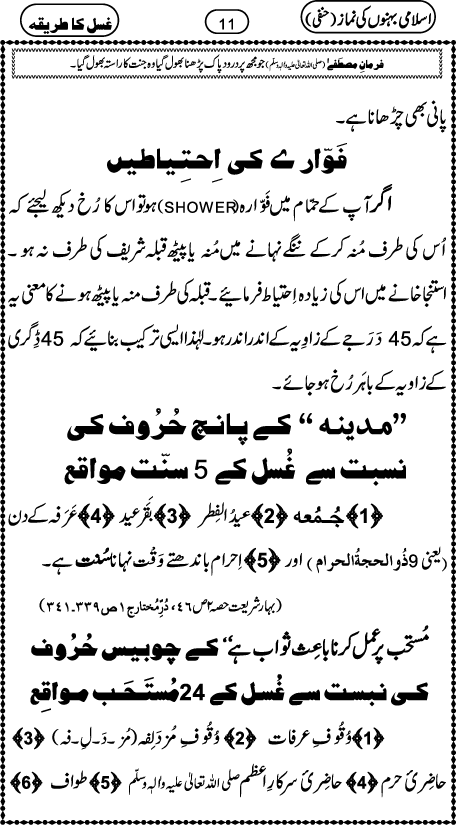 اسلامی بہنوں کی نماز (حنفی)
11
غسل کا طریقہ
فرمانِ مصطفےٰ (صلی اللہ تعالیٰ علیہ والہ وسلم) جو مجھ پر درود پاک پڑھنا بھول گیا وہ جنت کا راستہ بھول گیا۔
پانی بھی چڑھانا ہے۔
فَوّارے کی اِحتِیاطیں
اگر آپ کے حمّام میں فَوّارہ (SHOWER) ہو تو اس کا رُخ دیکھ لیجئے کہ
اُس کی طرف مُنہ کر کے ننگے نہانے میں مُنہ یا پیٹھ قبلہ شریف کی طرف نہ ہو۔
استنجا خانے میں اس کی زیادہ اِحتیاط فرمائیے۔ قبلہ کی طرف منہ یا پیٹھ ہونے کا معنی یہ
ہے کہ 45 دَرَجے کے زاوِیہ کے اندر اندر ہو۔ لہٰذا ایسی ترکیب بنائیے کہ 45 ڈِگری
کے زاویہ کے باہَر رُخ ہو جائے۔
”مدینہ“ کے پانچ حُرُوف کی
نسبت سے غُسل کے 5 سنّت مواقع
﴿1﴾ جُمُعہ ﴿2﴾ عیدُ الفِطر ﴿3﴾ بَقَر عید ﴿4﴾ عَرَفہ کے دن
(یعنی 9 ذُوالحجۃُ الحرام) اور ﴿5﴾ اِحرام باندھتے وَقْت نہانا سُنّت ہے۔
(بہار شریعت حصہ ۲ ص ۴۶، دُرِّمُختار ج ۱ ص ۳۳۹۔۳۴۱)
مُستحَب پر عمل کرنا باعِثِ ثواب ہے“ کے چوبیس حُرُوف
کی نبست سے غُسل کے 24 مُستَحَب مواقِع
﴿1﴾ وُقُوفِ عرفات ﴿2﴾ وُقُوفِ مُزدَلِفہ (مُز۔دَ۔لِ۔فہ) ﴿3﴾
حاضِریٔ حرم ﴿4﴾ حاضِریٔ سرکارِ اعظم صلی اللہ تعالیٰ علیہ والہ وسلّم ﴿5﴾ طواف ﴿6﴾